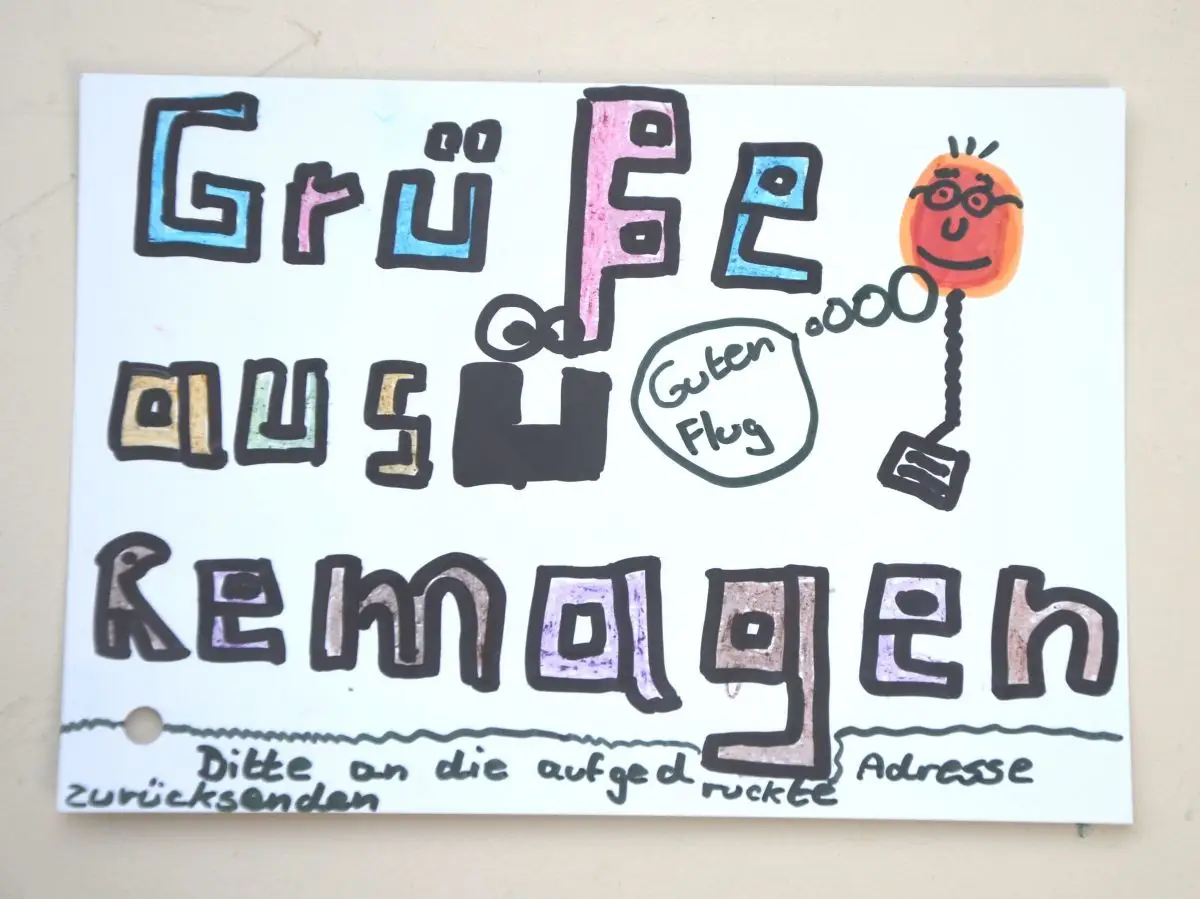 Grüße
aus
Guten
Flug
Remagen
Bitte an die aufgedruckte Adresse
zurücksenden